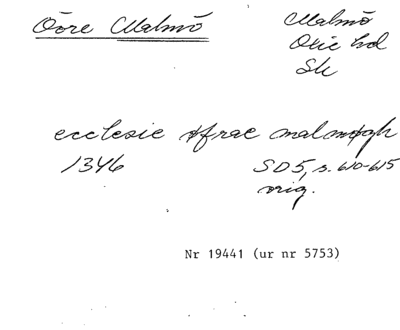 Övre Malmö
Malmö
Oxie hd
Sk
ecclesie øfrae malmøgh
1346
SD5, s. 610-615
orig.
Nr 19441 (ur nr 5753)